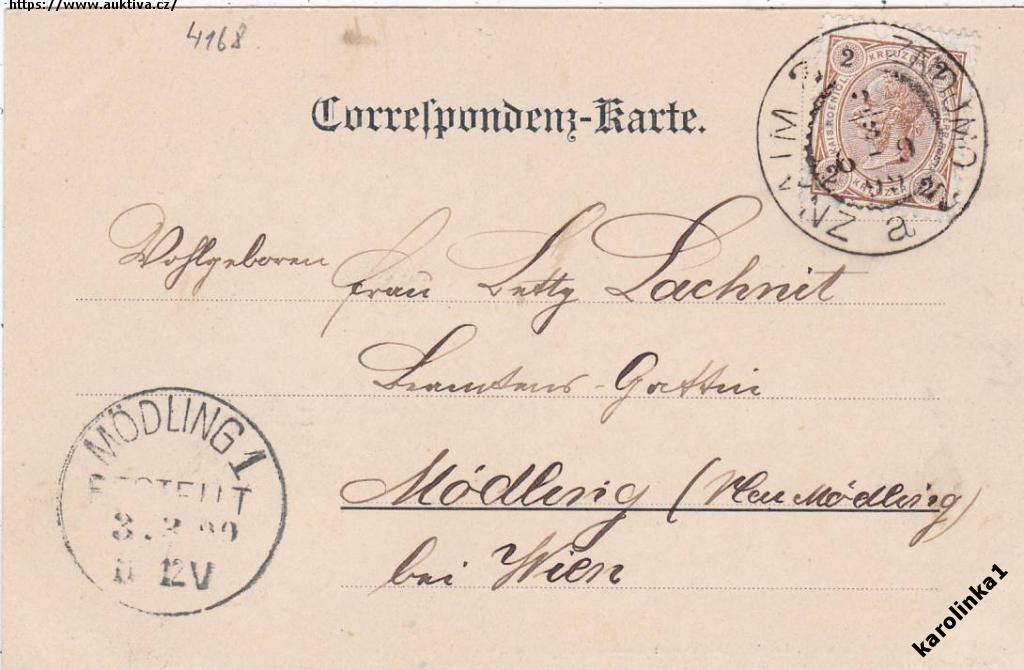 https://www.auktiva.cz/
4168
Correspondenz-Karte.
2 KREUZER 2
KAIS.KOENIGL. OESTERR.
2 KREUZER 2
ZNAIM 2 ZNOJMO 2
Wohlgeboren Frau Betty Lachnit
Beamtens-Gattin
Mödling (Neu Mödling)
bei Wien
MÖDLING 1
BESTELLT
3.3.99
12V
karolinka1